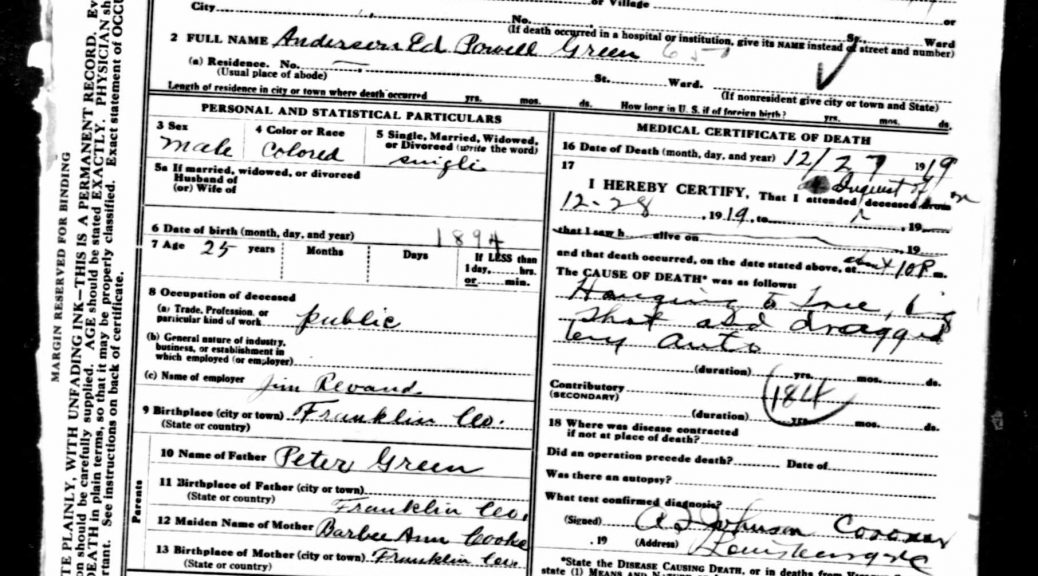 or Village
City No. St. Ward
or
(If death occurred in a hospital or institution, give its NAME instead of street and number)
2 FULL NAME Anderson Ed Powell Green
(a) Residence. No. St. Ward.
(Usual place of abode) (If nonresident give city or town and State)
Length of residence in city or town where death occurred yrs. mos. ds. How long in U. S. if of foreign birth? yrs. mos. ds.
PERSONAL AND STATISTICAL PARTICULARS
3 Sex 4 Color or Race 5 Single, Married, Widowed, or Divorced (write the word)
male colored single
5a If married, widowed, or divorced
Husband of
(or) Wife of
6 Date of birth (month, day, and year) 1894
7 Age 25 years Months Days If LESS than
1 day, hrs.
or min.
8 Occupation of deceased
(a) Trade, Profession, or
particular kind of work public
(b) General nature of industry,
business, or establishment in
which employed (or employer)
(c) Name of employer Jim
9 Birthplace (city or town) Franklin Co.
(State or country)
Parents
10 Name of Father Peter Green
11 Birthplace of Father (city or town)
(State or country) Franklin Co.
12 Maiden Name of Mother Ann Cooke
13 Birthplace of Mother (city or town) Franklin Co.
(State or country)
MEDICAL CERTIFICATE OF DEATH
16 Date of Death (month, day, and year) 12/27 1919
17
I HEREBY CERTIFY, That I attended deceased from
12-28, 1919, to , 19
that I saw h alive on , 19
and that death occurred, on the date stated above, at about 10 P. m.
The CAUSE OF DEATH* was as follows:
Hanging to Tree,
shot and dragged
by auto
(duration) yrs. mos. ds.
Contributory
(SECONDARY)
184
(duration) yrs. mos. ds.
18 Where was disease contracted
if not at place of death?
Did an operation precede death? Date of
Was there an autopsy?
What test confirmed diagnosis?
(Signed) Johnson Coroner
, 19 (Address) Louisburg NC
*State the DISEASE CAUSING DEATH, or in deaths from
state (1) MEANS AND
MARGIN RESERVED FOR BINDING
TE PLAINLY, WITH UNFADING INK—THIS IS A PERMANENT RECORD. Ev
on should be carefully supplied. AGE should be stated EXACTLY. PHYSICIAN sh
DEATH in plain terms, so that it may be properly classified. Exact statement of OCCU
ortant. See instructions on back of certificate.